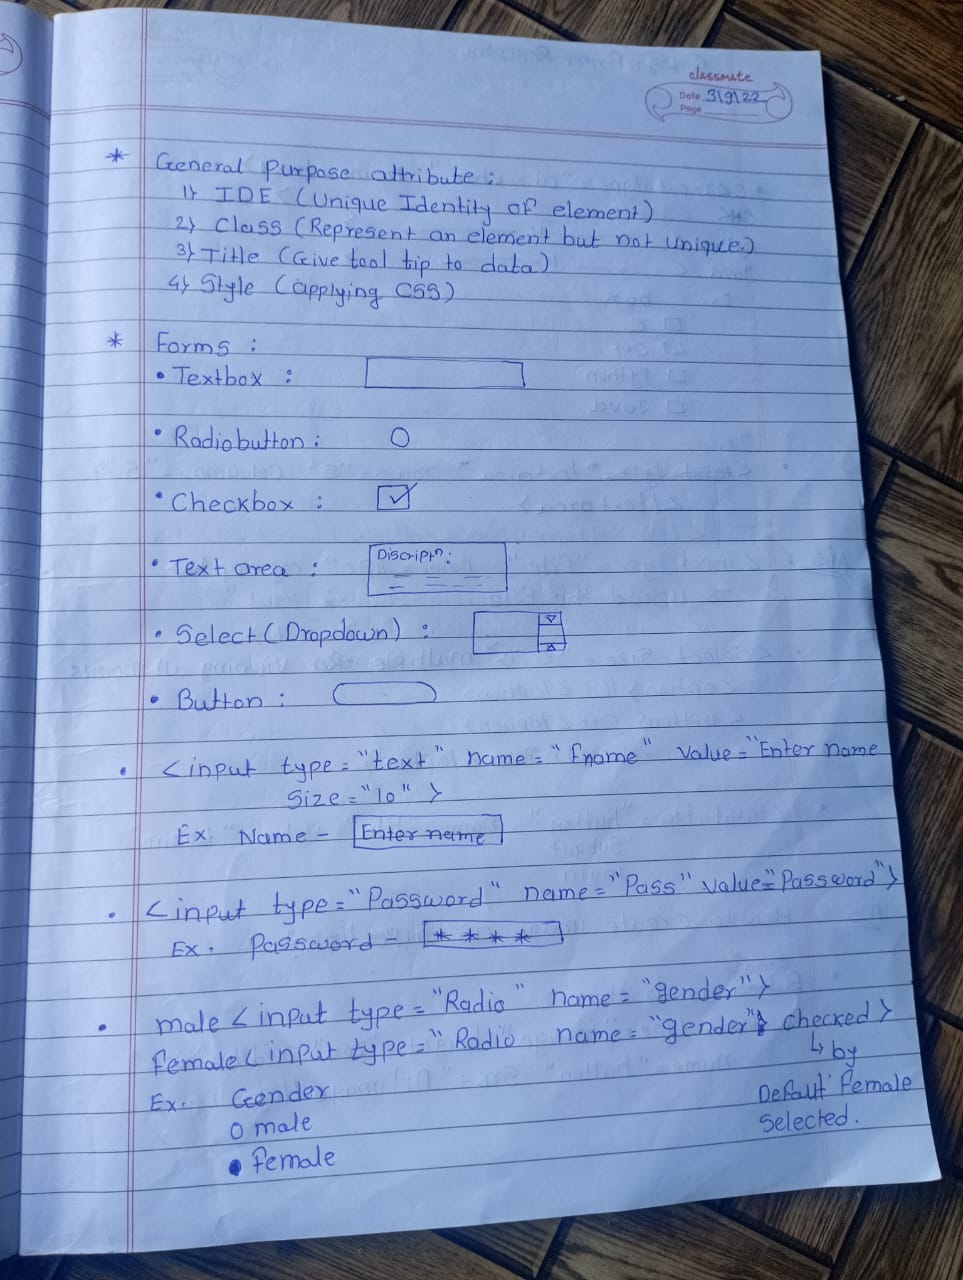 classmate
Date 3\9\22
Page
* General Purpose attribute :
1) IDE (Unique Identity of element)
2) Class (Represent an element but not unique.)
3) Title (Give tool tip to data)
4) Style (applying CSS)
* Forms :
• Textbox :
• Radiobutton :
• Checkbox :
• Text area : Discriptn :
• Select (Dropdown) :
• Button :
• <input type = "text" name = "fname" value = "Enter name
Size = "10" >
Ex. Name - Enter name
• <input type = "Password" name = "Pass" value = "Password">
Ex. Password - * * * *
• male <input type = "Radio" name = "gender">
female <input type = "Radio name = "gender" checked>
↳ by
Ex. Gender
Default female
o male
Selected.
• female